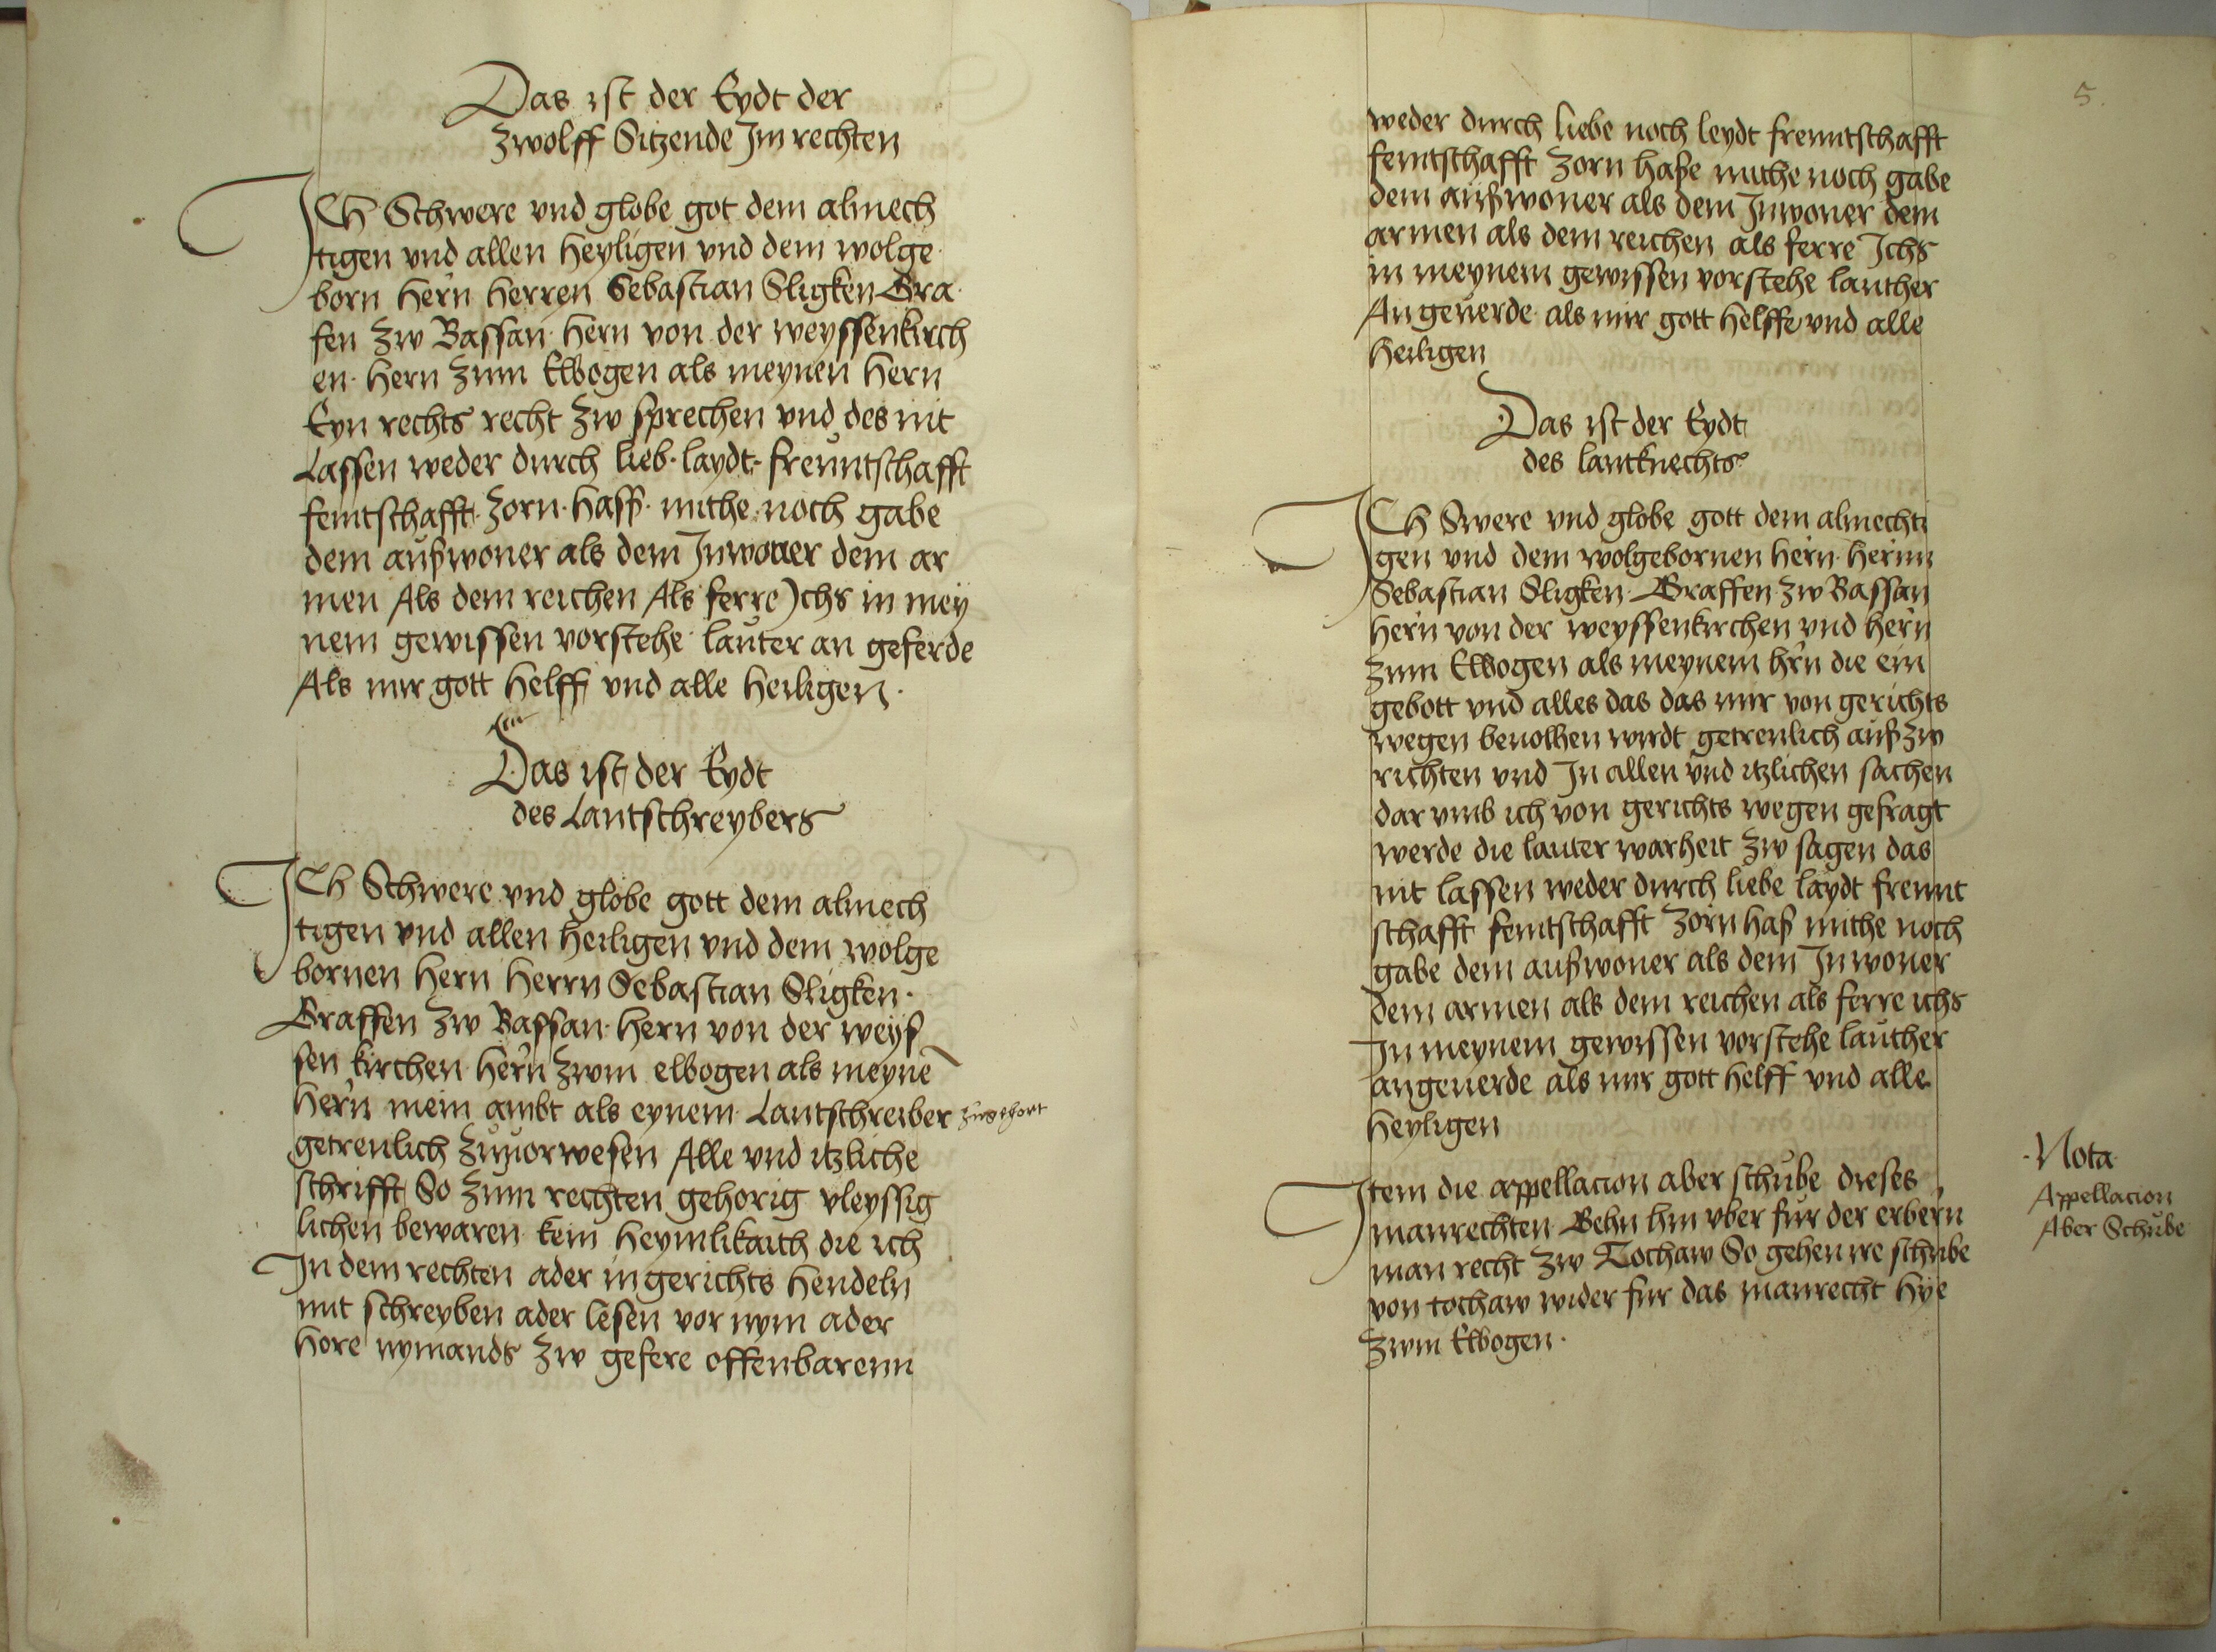 Das ist der Eydt der
zwolff Sitzende Im rechten
ICH Schwere vnd globe got dem almech
tigen vnd allen heyligen vnd dem wolge
born hern herren Sebastian Sligken Gra
fen zw Bassan hern von der weyssenkirch
en hern zum Elbogen als meynen hern
Eyn rechts recht zw sprechen vnd des nit
Lassen weder durch lieb laydt freuntschafft
feintschafft zorn hass mithe noch gabe
dem außwoner als dem Inwoner dem ar
men Als dem reichen Als ferre Ichs in mey
nem gewissen vorstehe lauter an geferde
Als mir gott helff vnd alle heiligen
Das ist der Eydt
des Lantschreybers
ICh Schwere vnd globe gott dem almech
tigen vnd allen heiligen vnd dem wolge
bornen hern herrn Sebastian Sligken
Graffen zw Bassan hern von der weyß
sen kirchen hern zwm elbogen als meyne
hern mein ambt als eynem Lantschreiber zugehort
getreulich zuuorwesen Alle vnd itzliche
schrifft So zum rechten gehorig vleyssig
lichen bewaren kein heymlikaith die ich
In dem rechten ader in gerichts hendeln
mit schreyben ader lesen vor nym ader
hore nymands zw gefere offenbarenn
5.
weder durch liebe noch leydt freuntschafft
feintschafft zorn haße mithe noch gabe
dem außwoner als dem Inwoner dem
armen als dem reichen als ferre Ichs
in meynem gewissen vorstehe lauther
An geuerde als mir gott helffe vnd alle
heiligen
Das ist der Eydt
des lantknechts
ICh Swere vnd globe gott dem almechti
gen vnd dem wolgebornen hern hernn
Sebastian Sligken Graffen zw Bassan
hern von der weyssenkirchen vnd hern
zum Elbogen als meynem hrn die ein
gebott vnd alles das das mir von gerichts
wegen beuolhen wirdt getreulich auß zw
richten vnd In allen vnd itzlichen sachen
dar vmb ich von gerichts wegen gefragt
werde die lauter warheit zw sagen das
nit lassen weder durch liebe laydt freunt
schafft feintschafft zorn haß mithe noch
gabe dem außwoner als dem Inwoner
dem armen als dem reichen als ferre ichs
In meynem gewissen vorstehe lauther
angeuerde als mir gott helff vnd alle
heyligen
Item die appellacion aber schube dieses
manrechten Gehn hin vber fur der erbern
man recht zw Tochaw So gehen ire schube
von tochaw wider fur das manrecht hye
zwm Elbogen
Nota
Appellacion
Aber Schube